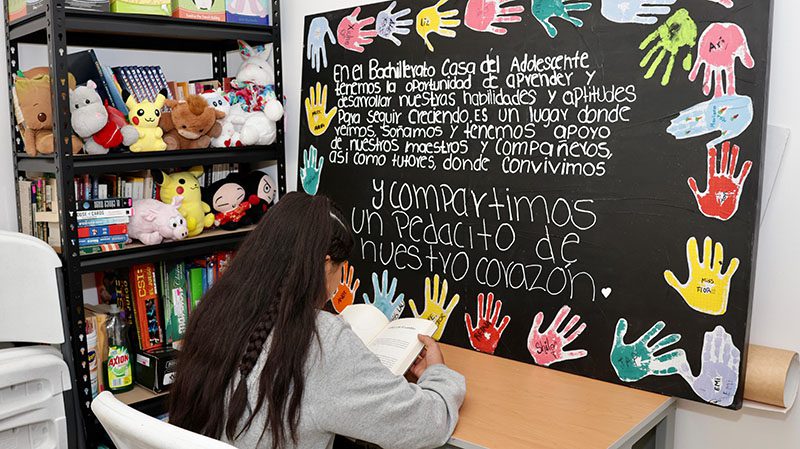 En el Bachillerato Casa del Adolescente
tenemos la oportunidad de aprender y
desarrollar nuestras habilidades y aptitudes
Para seguir creciendo, es un lugar donde
reímos, soñamos y tenemos apoyo
de nuestros maestros y compañeros,
así como tutores, donde convivimos
y compartimos
un pedacito de
nuestro corazón.
Ari
EMI
CSI
AXION